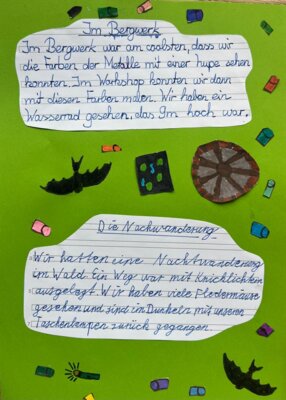 Im Bergwerk
Im Bergwerk war am coolsten, dass wir
die Farben der Metalle mit einer hupe sehen
konnten. Im Workshop konnten wir dann
mit diesen Farben malen. Wir haben ein
Wasserrad gesehen, das 9m hoch war.
Die Nachwanderung
Wir hatten eine Nachtwanderung
im Wald. Ein Weg war mit Knicklichtern
ausgelegt. Wir haben viele Fledermäuse
gesehen und sind im Dunkeln mit unseren
Taschenlampen zurück gegangen.